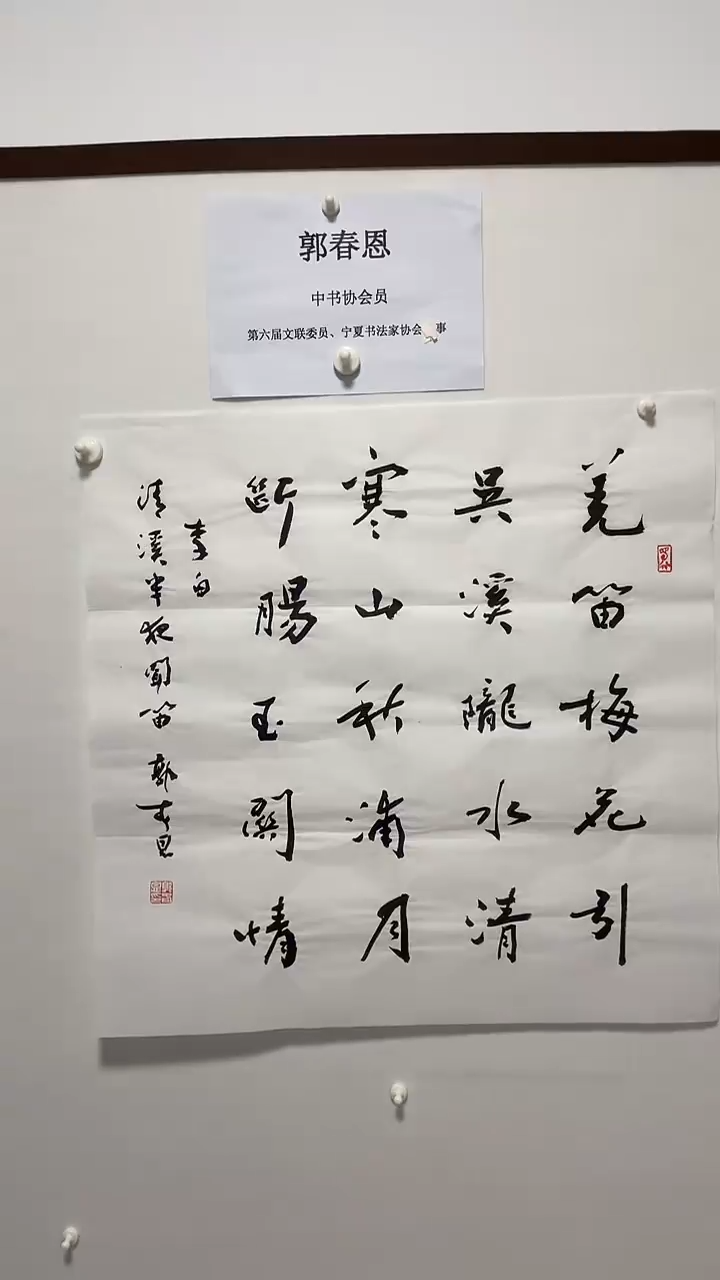 郭春恩
中书协会员
第六届文联委员、宁夏书法家协会事
羌笛梅花引
吴溪隴水清
寒山秋浦月
断腸玉関情
李白
清溪半夜闻笛 郭春恩